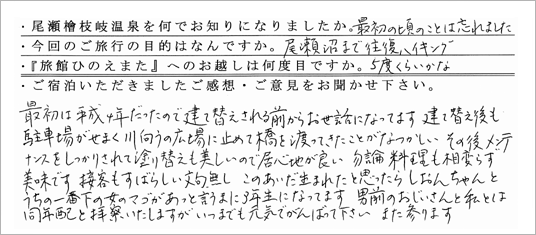 ・尾瀬檜枝岐温泉を何でお知りになりましたか。最初の頃のことは忘れました
・今回のご旅行の目的はなんですか。 尾瀬沼まで往復ハイキング
・『旅館ひのえまた』へのお越しは何度目ですか。 5度くらいかな
・ご宿泊いただきましたご感想・ご意見をお聞かせ下さい。
最初は平成4年だったので建て替えされる前からお世話になってます 建て替え後も
駐車場がせまく川向うの広場に止めて橋を渡ってきたことがなつかしい その後メンテ
ナンスをしっかりされて塗り替えも美しいので居心地が良い 勿論料理も相変らず
美味です 接客もすばらしい文句無し このあいだ生まれたと思ったらしおんちゃんと
うちの一番下の女のマゴがあっと言うまに3年生になってます 男前のおじいさんと私とは
同年配と拝察いたしますがいつまでも元気でがんばって下さい また参ります